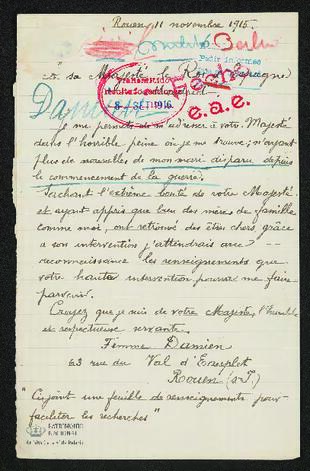 Rouen, 11 novembre 1915.
Berlin
Pedir informes
"A sa Majesté le Roi d'Espagne
Transmitido
8 - SET 1916
e.a.e.
Damien
Je me permets de m'adresser à votre Majesté
dans l'horrible peine où je me trouve; n'ayant
plus de nouvelles de mon mari disparu depuis
le commencement de la guerre.
Sachant l'extrême bonté de votre Majesté
et ayant appris que bien des mères de famille
comme moi, ont retrouvé des êtres chers grâce
à son intervention j'attendrais avec
reconnaissance les renseignements que
votre haute intervention pourra me faire
parvenir.
Croyez que je suis de votre Majesté, l'humble
et respectueuse servante.
Femme Damien
23 rue du Val d'Eauplet
Rouen (S-I)
"Ci-joint une feuille de renseignements pour
faciliter les recherches"
PATRIMONIO
NACIONAL